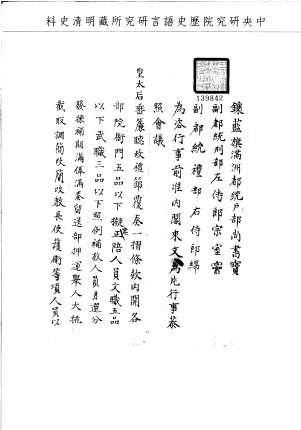 中央研究院歷史語言研究所藏明清史料
139842
鑲藍旗滿洲都統戶部尚書寶
副都統刑部左侍郎宗室靈
副都統禮部右侍郎綿
為咨行事前准內閣來文為片行事恭
照會議
皇太后垂簾聽政禮節覆奏一摺條款內開各
部院衙門五品以下擬正陪人員文職五品
以下武職三品以下照例補放人員月選分
發揀補期滿俸滿奏留送部押運舉人大挑
截取調簡改簡改教長史護衛等項人員以